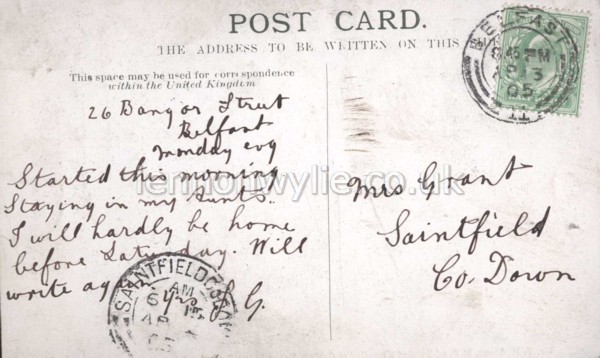 POST CARD.
THE ADDRESS TO BE WRITTEN ON THIS
This space may be used for correspondence
within the United Kingdom
BELFAST
8 45 PM
AP 3
05
11
26 Bangor Street
Belfast
Monday evg
Started this morning
Staying in my Aunts.
I will hardly be home
before Saturday. Will
write again
J. G.
lennonwylie.co.uk
Mrs Grant
Saintfield
Co. Down
SAINTFIELD
AM
AP
05